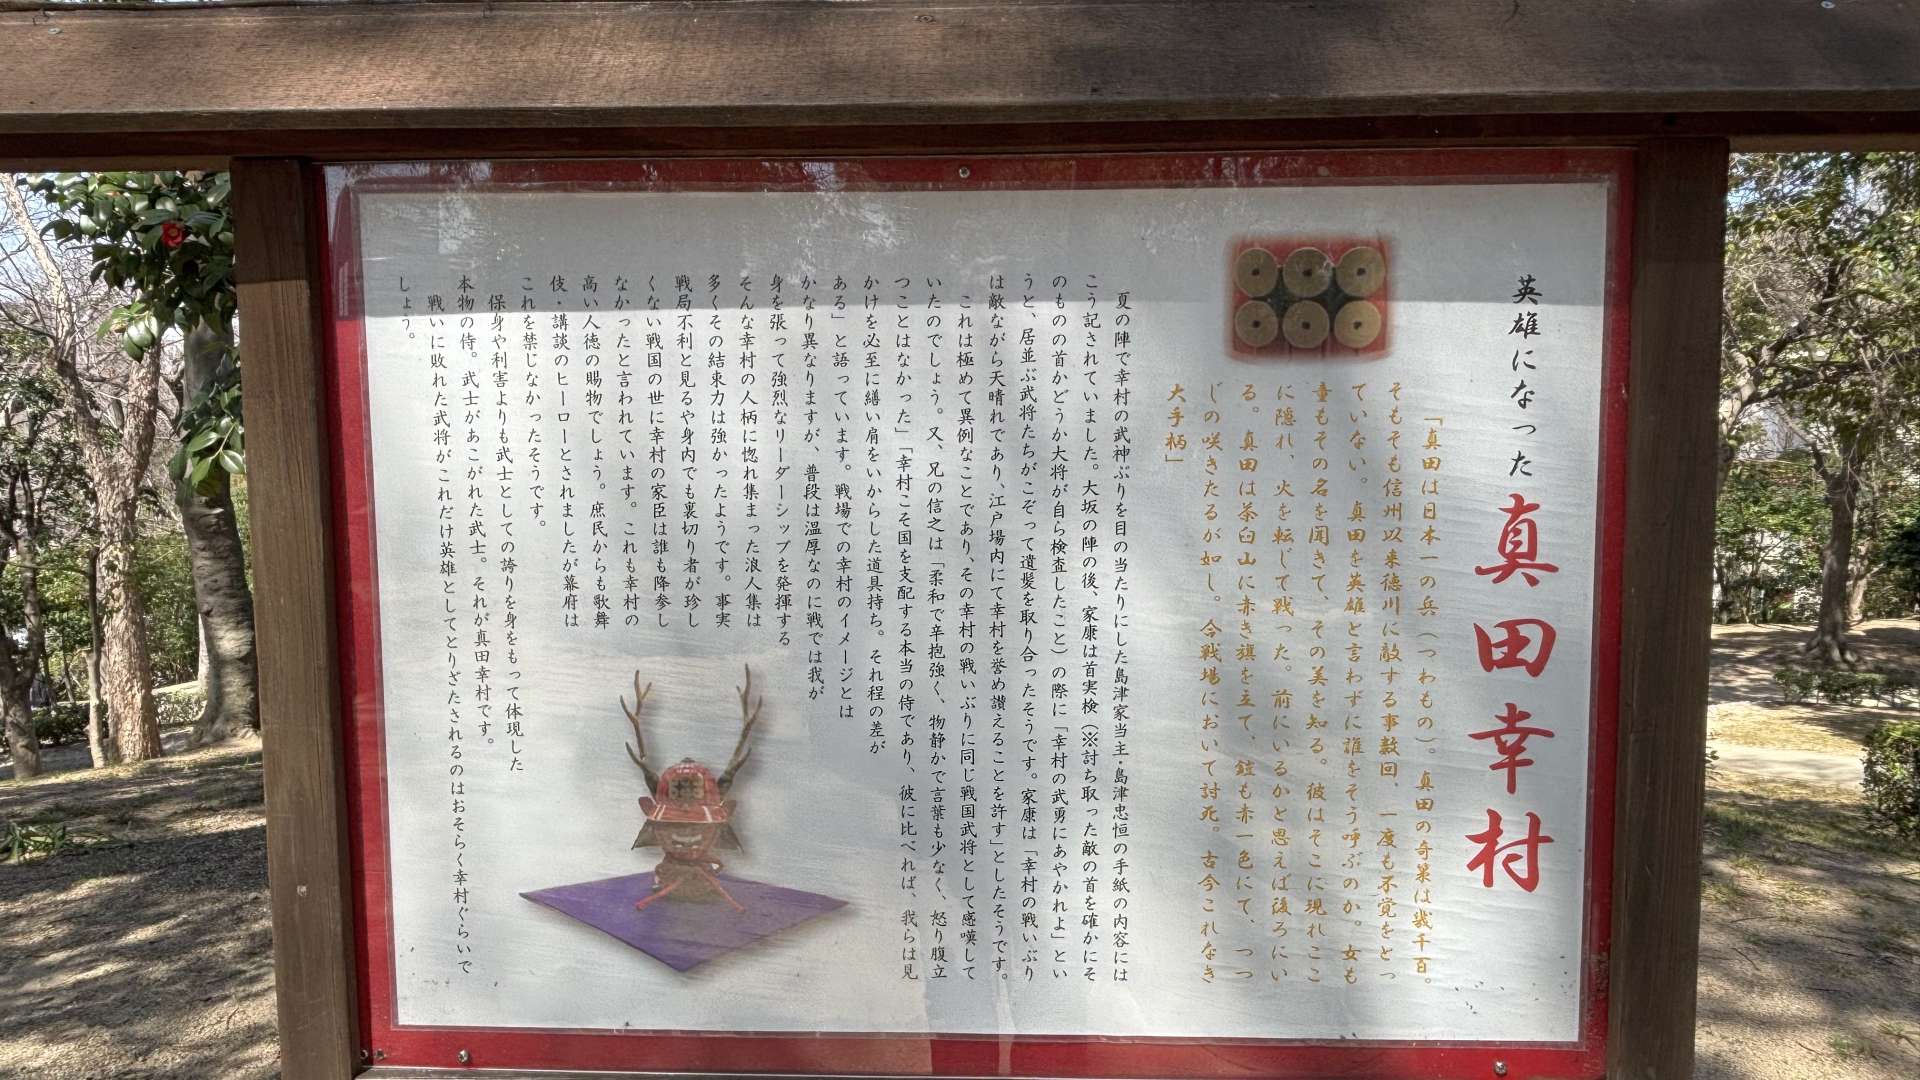 英雄になった真田幸村
「真田は日本一の兵（つわもの）。真田の奇策は幾千百。
そもそも信州以来徳川に敵する事数回、一度も不覚をとっ
ていない。真田を英雄と言わずに誰をそう呼ぶのか。女も
童もその名を聞きて、その美を知る。彼はそこに現れここ
に隠れ、火を転じて戦った。前にいるかと思えば後ろにい
る。真田は茶臼山に赤き旗を立て、鎧も赤一色にて、つつ
じの咲きたるが如し。今戦場において討死。古今これなき
大手柄」
夏の陣で幸村の武神ぶりを目の当たりにした島津家当主・島津忠恒の手紙の内容には
こう記されていました。大坂の陣の後、家康は首実検（※討ち取った敵の首を確かにそ
のものの首かどうか大将が自ら検査したこと）の際に「幸村の武勇にあやかれよ」とい
うと、居並ぶ武将たちがこぞって遺髪を取り合ったそうです。家康は「幸村の戦いぶり
は敵ながら天晴れであり、江戸場内にて幸村を誉め讃えることを許す」としたそうです。
これは極めて異例なことであり、その幸村の戦いぶりに同じ戦国武将として感嘆して
いたのでしょう。又、兄の信之は「柔和で辛抱強く、物静かで言葉も少なく、怒り腹立
つことはなかった」「幸村こそ国を支配する本当の侍であり、彼に比べれば、我らは見
かけを必至に繕い肩をいからした道具持ち。それ程の差が
ある」と語っています。戦場での幸村のイメージとは
かなり異なりますが、普段は温厚なのに戦では我が
身を張って強烈なリーダーシップを発揮する
そんな幸村の人柄に惚れ集まった浪人集は
多くその結束力は強かったようです。事実
戦局不利と見るや身内でも裏切り者が珍し
くない戦国の世に幸村の家臣は誰も降参し
なかったと言われています。これも幸村の
高い人徳の賜物でしょう。庶民からも歌舞
伎・講談のヒーローとされましたが幕府は
これを禁じなかったそうです。
保身や利害よりも武士としての誇りを身をもって体現した
本物の侍。武士があこがれた武士。それが真田幸村です。
戦いに敗れた武将がこれだけ英雄としてとりざたされるのはおそらく幸村ぐらいで
しょう。